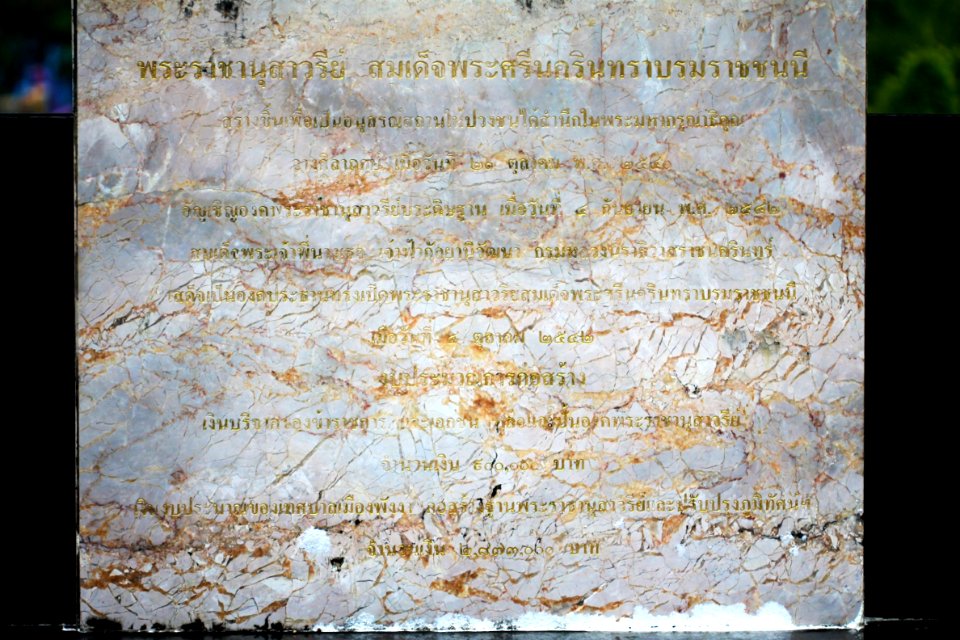 พระราชานุสาวรีย์ สมเด็จพระศรีนครินทราบรมราชชนนี
สร้างขึ้นเพื่อเป็นอนุสรณ์สถานให้ปวงชนได้รำลึกในพระมหากรุณาธิคุณ
วางศิลาฤกษ์ เมื่อวันที่ ๒๑ ตุลาคม พ.ศ.
อัญเชิญองค์พระราชานุสาวรีย์ประดิษฐาน เมื่อวันที่ ๔ กันยายน พ.ศ. ๒๕๔๒
สมเด็จพระเจ้าพี่นางเธอ เจ้าฟ้ากัลยาณิวัฒนา กรมหลวงนราธิวาสราชนครินทร์
เสด็จเป็นองค์ประธานทรงเปิดพระราชานุสาวรีย์สมเด็จพระศรีนครินทราบรมราชชนนี
เมื่อวันที่ ตุลาคม ๒๕๔๒
งบประมาณการก่อสร้าง
เงินบริจาคของข้าราชการ และเอกชน หล่อและปั้นองค์พระราชานุสาวรีย์
จำนวนเงิน บาท
เงินงบประมาณของเทศบาลเมืองพังงา ก่อสร้างฐานพระราชานุสาวรีย์และปรับปรุงภูมิทัศน์ฯ
จำนวนเงิน ๒,๘๗๓,๐๐๐ บาท